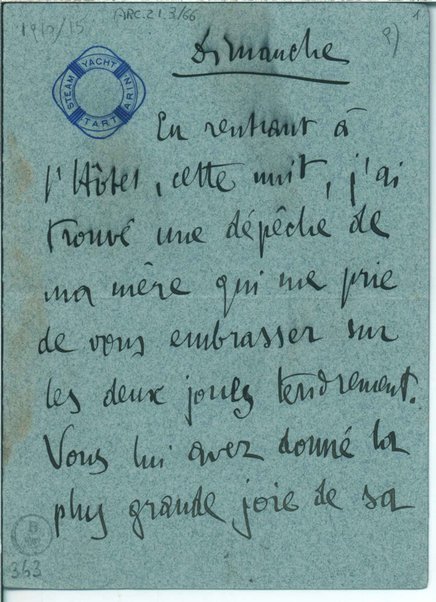 ARC.21.3/66
1
Dimanche
STEAM YACHT TARTARIN
En rentrant à
l'Hôtel, cette nuit, j'ai
trouvé une dépêche de
ma mère qui me prie
de vous embrasser sur
les deux joues tendrement.
Vous lui avez donné la
plus grande joie de sa
B
343